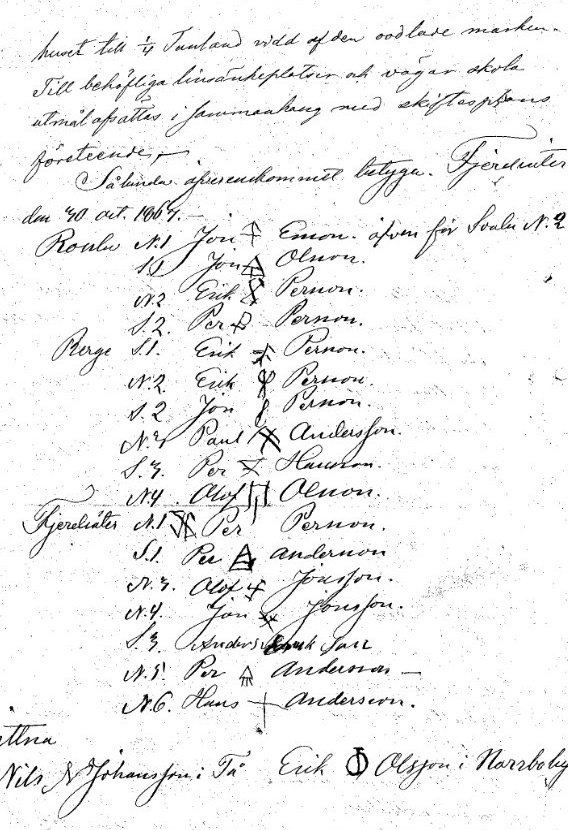 huset till 1/4 Tunland vidd af den oodlade marken.
Till behöfliga linsänkeplatser och vägar skola
utmål afsättas i sammanhang med skiftesplans
företeende,
Sålunda öfverenskommet betyga. Fjerdsäter
den 30 oct. 1867.
N.1 Jon Erson. äfven för N. 2
S.1 Jon Olsson.
N.2 Erik Persson.
S.2. Per Persson.
Berge S.1. Erik Persson.
N.2 Erik Persson.
S.2 Jon Persson.
N.3 Paul Andersson.
S.3. Per Hansson.
N.4. Olof Olsson.
Fjerdsäter N.1 Per Persson.
S.1. Per Andersson
N.3. Olof Jönsson.
N.4. Jon Jönsson.
S.3. Anders
N.5. Per Andersson
N.6. Hans Andersson.
Nils Johansson i Tå Erik Olsson i Narrboby